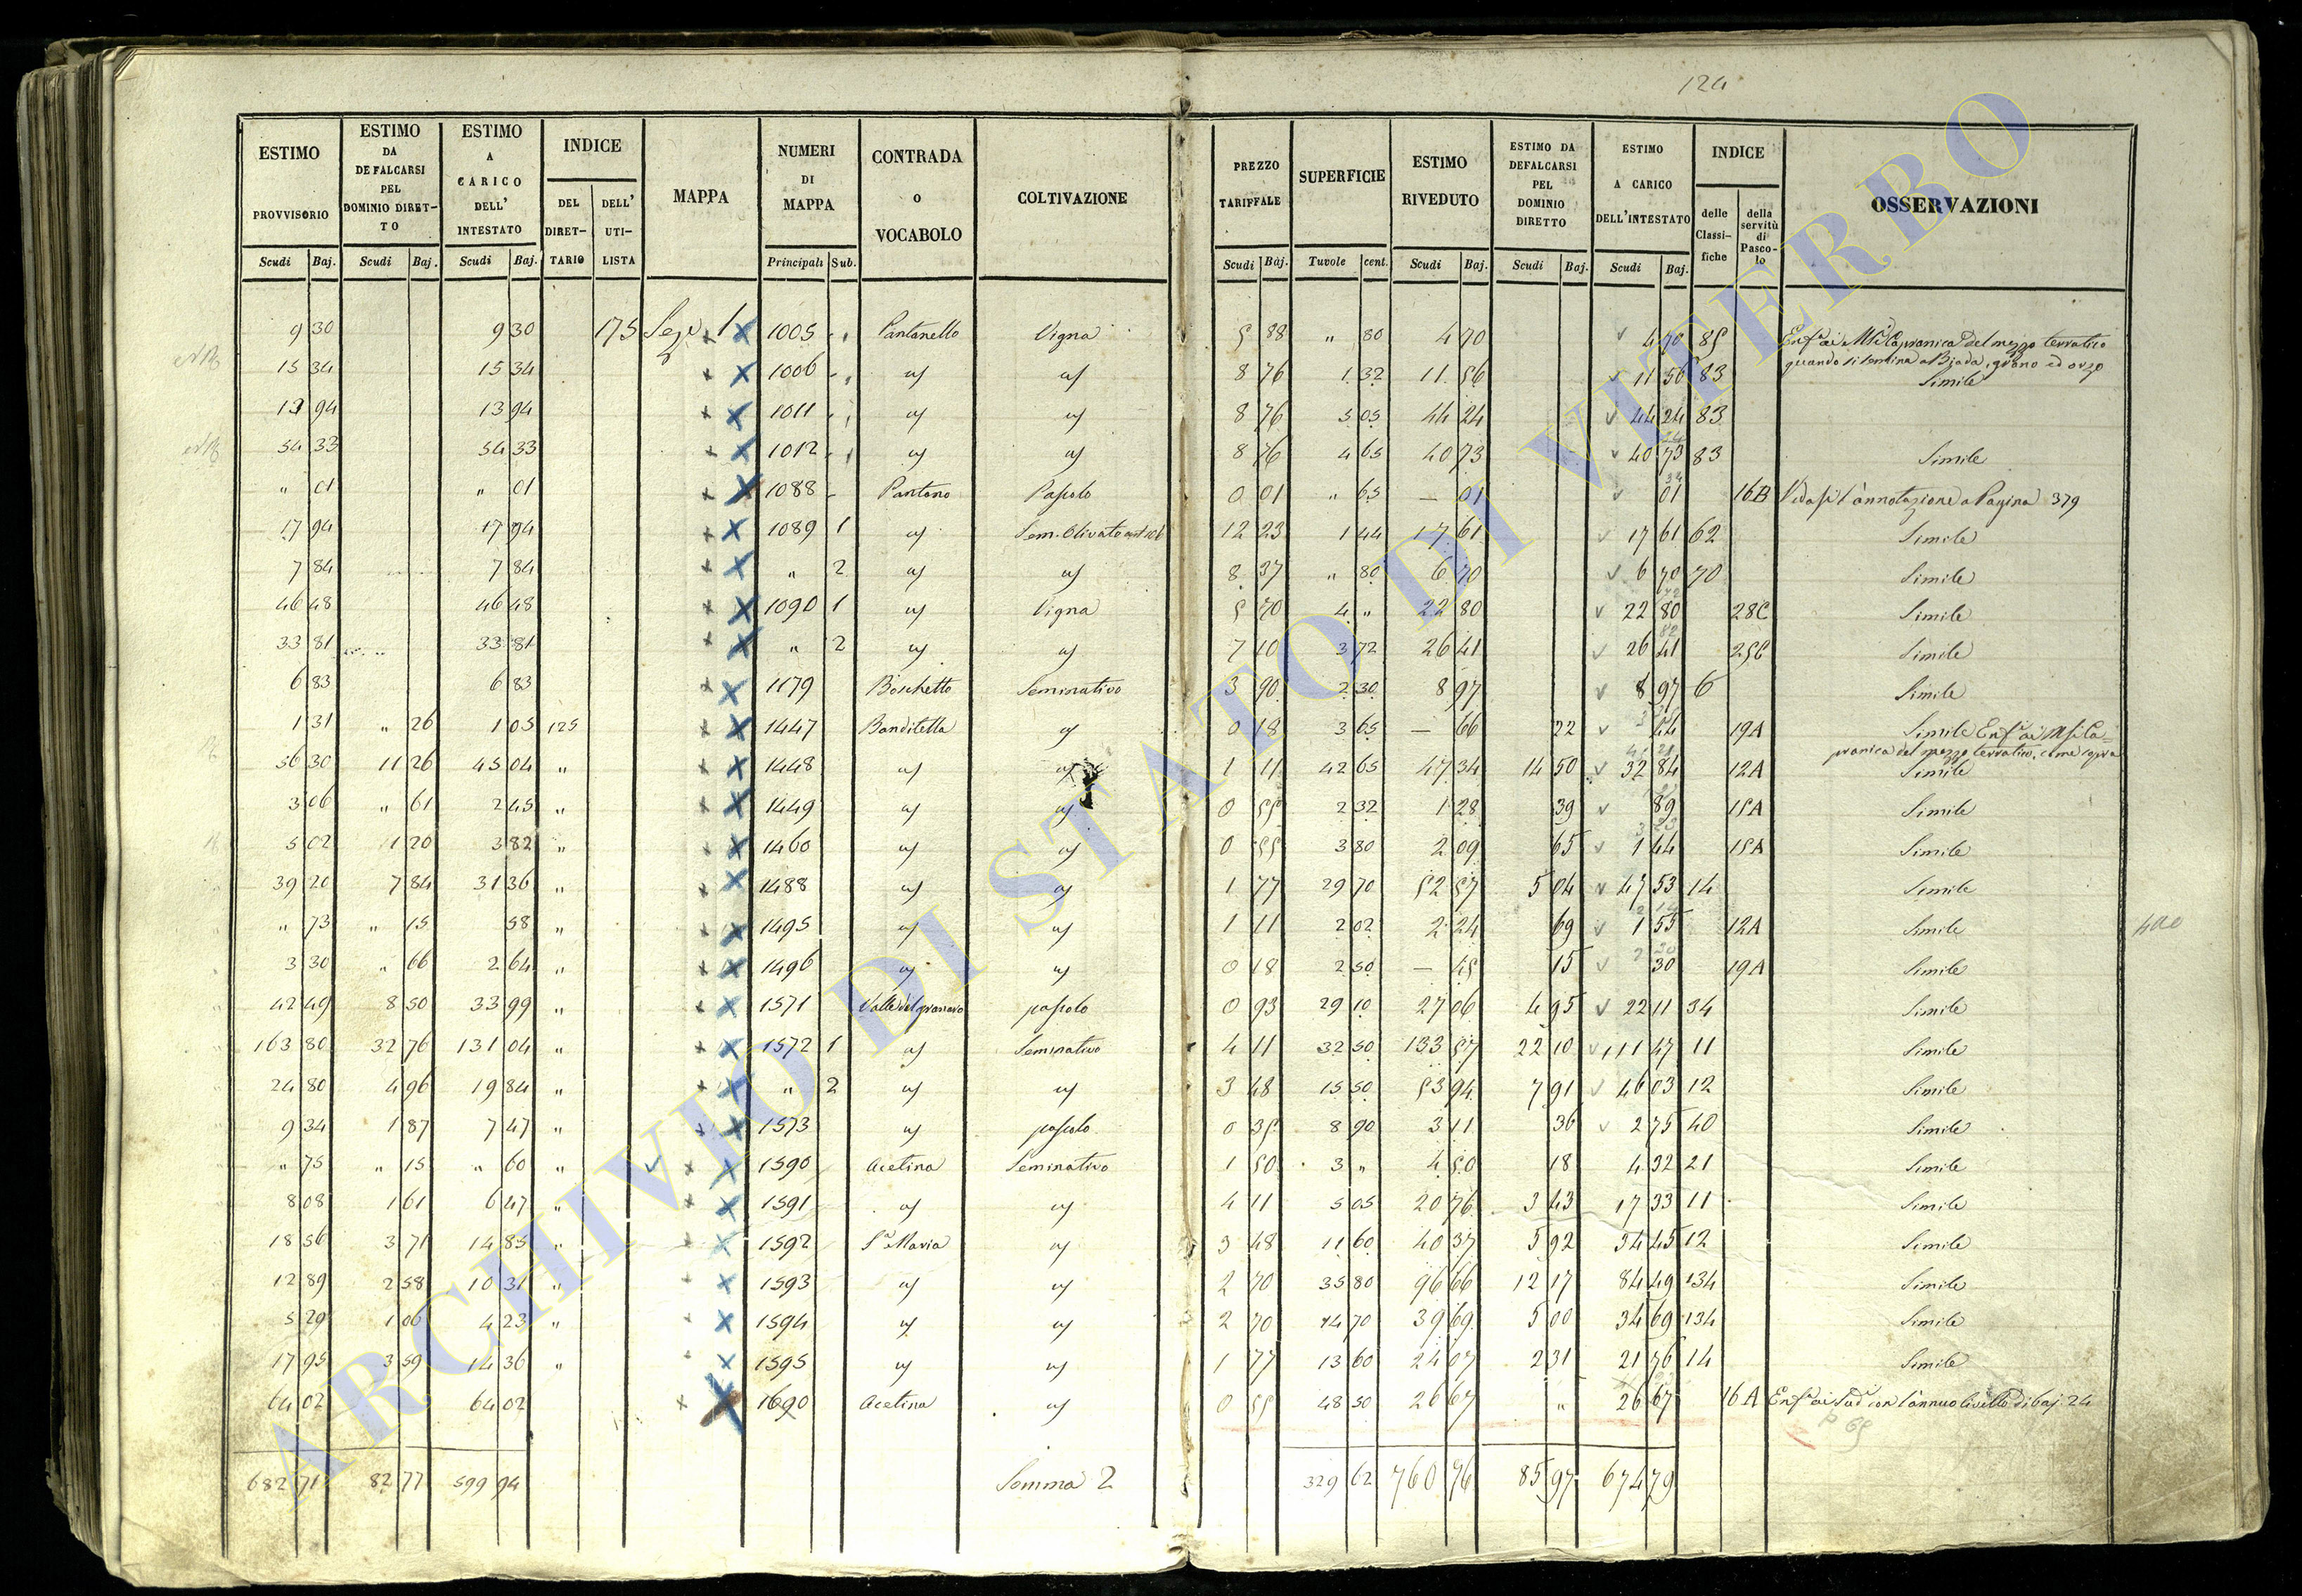 124
ESTIMO PROVVISORIO | ESTIMO DA DEFALCARSI PEL DOMINIO DIRETTO | ESTIMO A CARICO DELL' INTESTATO | INDICE DEL DIRETTARIO | DELL' UTILISTA | MAPPA | NUMERI DI MAPPA | CONTRADA O VOCABOLO | COLTIVAZIONE | PREZZO TARIFFALE | SUPERFICIE | ESTIMO RIVEDUTO | ESTIMO DA DEFALCARSI PEL DOMINIO DIRETTO | ESTIMO A CARICO DELL'INTESTATO | INDICE delle Classifiche | della servitù di Pascolo | OSSERVAZIONI
Scudi | Baj. | Scudi | Baj. | Scudi | Baj. | Principali | Sub. | Scudi | Baj. | Tavole | cent. | Scudi | Baj. | Scudi | Baj. | Scudi | Baj.
9 30 | 9 30 | 175 | Sez. 1 | 1005 " | Pantanello | Vigna | 5 88 | " 80 | 4 70 | 4 70 | 85 | del mezzo terratico
quando si semina a Biada, grano ed orzo
15 34 | 15 34 | 1006 " | " | " | 8 76 | 1 32 | 11 56 | 11 56 | 83 | Simile
13 94 | 13 94 | 1011 " | " | " | 8 76 | 5 05 | 44 24 | 44 24 | 83
54 33 | 54 33 | 1012 " | " | " | 8 76 | 4 65 | 40 73 | 40 73 | 83 | Simile
" 01 | " 01 | 1088 | Pantano | Pascolo | 0 01 | " 65 | — 01 | 01 | 16B | Vedasi l'annotazione a Pagina 379
17 94 | 17 94 | 1089 1 | " | Sem. Olivato | 12 23 | 1 44 | 17 61 | 17 61 | 62 | Simile
7 84 | 7 84 | " 2 | " | " | 8 37 | " 80 | 6 70 | 6 70 | 70 | Simile
46 48 | 46 48 | 1090 1 | " | Vigna | 5 70 | 4 " | 22 80 | 22 80 | 28C | Simile
33 81 | 33 81 | " 2 | " | " | 7 10 | 3 72 | 26 41 | 26 41 | 25C | Simile
6 83 | 6 83 | 1179 | Boschetto | Seminativo | 3 90 | 2 30 | 8 97 | 8 97 | 6 | Simile
1 31 | " 26 | 1 05 | 125 | 1447 | Banditella | " | 0 18 | 3 65 | — 66 | 22 | 44 | 19A | Simile
pranica del mezzo terratico, come sopra
56 30 | 11 26 | 45 04 | " | 1448 | " | " | 1 11 | 42 65 | 47 34 | 14 50 | 32 84 | 12A | Simile
3 06 | " 61 | 2 45 | " | 1449 | " | " | 0 55 | 2 32 | 1 28 | 39 | 89 | 15A | Simile
5 02 | 1 20 | 3 82 | " | 1460 | " | " | 0 55 | 3 80 | 2 09 | 65 | 1 44 | 15A | Simile
39 20 | 7 84 | 31 36 | " | 1488 | " | " | 1 77 | 29 70 | 52 57 | 5 04 | 47 53 | 14 | Simile
" 73 | " 15 | 58 | " | 1495 | " | " | 1 11 | 2 02 | 2 24 | 69 | 1 55 | 12A | Simile
3 30 | " 66 | 2 64 | " | 1496 | " | " | 0 18 | 2 50 | — 45 | 15 | 30 | 19A | Simile
42 49 | 8 50 | 33 99 | " | 1571 | pascolo | 0 93 | 29 10 | 27 06 | 4 95 | 22 11 | 34 | Simile
163 80 | 32 76 | 131 04 | " | 1572 1 | " | Seminativo | 4 11 | 32 50 | 133 57 | 22 10 | 111 47 | 11 | Simile
24 80 | 4 96 | 19 84 | " | " 2 | " | " | 3 48 | 15 50 | 53 94 | 7 91 | 46 03 | 12 | Simile
9 34 | 1 87 | 7 47 | " | 1573 | " | pascolo | 0 35 | 8 90 | 3 11 | 36 | 2 75 | 40 | Simile
" 75 | " 15 | " 60 | " | 1590 | Acetina | Seminativo | 1 50 | 3 " | 4 50 | 18 | 4 32 | 21 | Simile
8 08 | 1 61 | 6 47 | " | 1591 | " | " | 4 11 | 5 05 | 20 76 | 3 43 | 17 33 | 11 | Simile
18 56 | 3 71 | 14 85 | " | 1592 | Sa Maria | " | 3 48 | 11 60 | 40 37 | 5 92 | 34 45 | 12 | Simile
12 89 | 2 58 | 10 31 | " | 1593 | " | " | 2 70 | 35 80 | 96 66 | 12 17 | 84 49 | 134 | Simile
5 29 | 1 06 | 4 23 | " | 1594 | " | " | 2 70 | 14 70 | 39 69 | 5 00 | 34 69 | 134 | Simile
17 95 | 3 59 | 14 36 | " | 1595 | " | " | 1 77 | 13 60 | 24 07 | 2 31 | 21 76 | 14 | Simile
64 02 | 64 02 | 1690 | Acetina | " | 0 55 | 48 50 | 26 67 | " | 26 67 | 16 A | con l'annuo livello di baj. 24
682 71 | 82 77 | 599 94 | Somma 2 | 329 62 | 760 76 | 85 97 | 674 79
ARCHIVIO DI STATO DI VITERBO